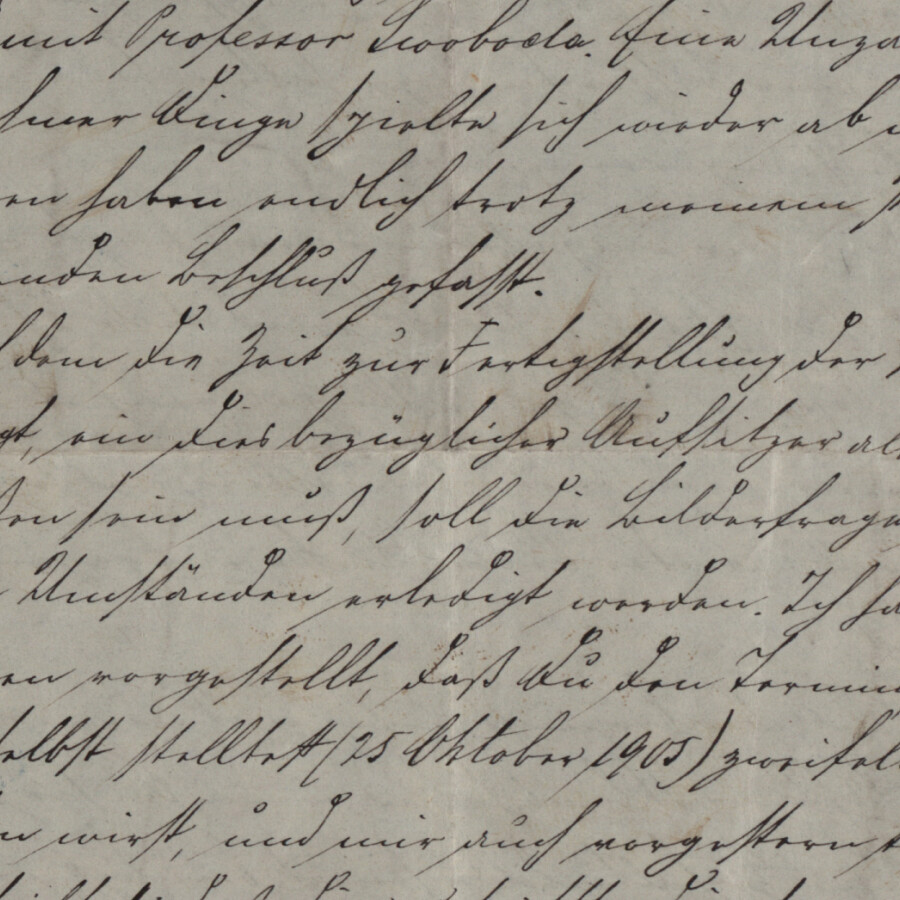 mit Professor Swoboda. Eine Unza
Dinge spielte sich wieder ab
en haben endlich trotz meinem
enden Beschluß gefasst.
dem die Zeit zur Fertigstellung der
gt, ein diesbezüglicher Aufsitzer al
ßen sein muß, soll die Bilderfrage
Umständen erledigt werden. Ich ha
en vorgestellt, daß Du den Termin
selbst stelltest (25 Oktober 1905) zweifel
n wirst, und mir auch vorgestern